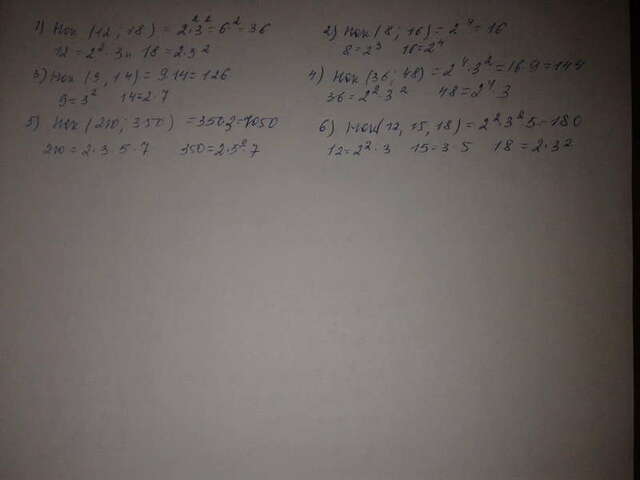 1) Нок (12; 18) = 2²·3² = 6² = 36
12 = 2²·3 и 18 = 2·3²
2) Нок (8; 16) = 2⁴ = 16
8 = 2³ 16 = 2⁴
3) Нок (9, 14) = 9·14 = 126
9 = 3² 14 = 2·7
4) Нок (36; 48) = 2⁴·3² = 16·9 = 144
36 = 2²·3² 48 = 2⁴·3
5) Нок (210; 350) = 350·3 = 1050
210 = 2·3·5·7 350 = 2·5²·7
6) Нок (12, 15, 18) = 2²·3²·5 = 180
12 = 2²·3 15 = 3·5 18 = 2·3²